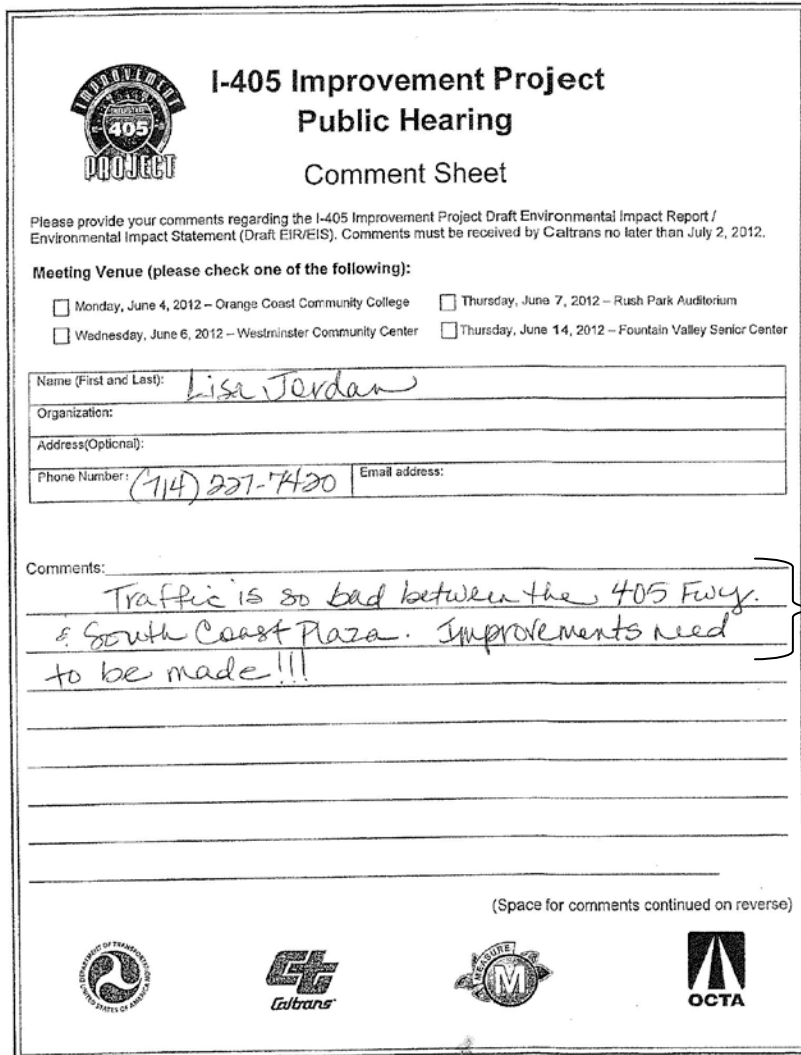 IMPROVEMENT
INTERSTATE
405
PROJECT
I-405 Improvement Project
Public Hearing
Comment Sheet
Please provide your comments regarding the I-405 Improvement Project Draft Environmental Impact Report /
Environmental Impact Statement (Draft EIR/EIS). Comments must be received by Caltrans no later than July 2, 2012.
Meeting Venue (please check one of the following):
Monday, June 4, 2012 – Orange Coast Community College
Thursday, June 7, 2012 – Rush Park Auditorium
Wednesday, June 6, 2012 – Westminster Community Center
Thursday, June 14, 2012 – Fountain Valley Senior Center
Name (First and Last): Lisa Jordan
Organization:
Address(Optional):
Phone Number: (714) 227-7420 Email address:
Comments:
Traffic is so bad between the 405 Fwy.
& South Coast Plaza. Improvements need
to be made!!!
(Space for comments continued on reverse)
DEPARTMENT OF TRANSPORTATION
UNITED STATES OF AMERICA
Caltrans
MEASURE
M
OCTA